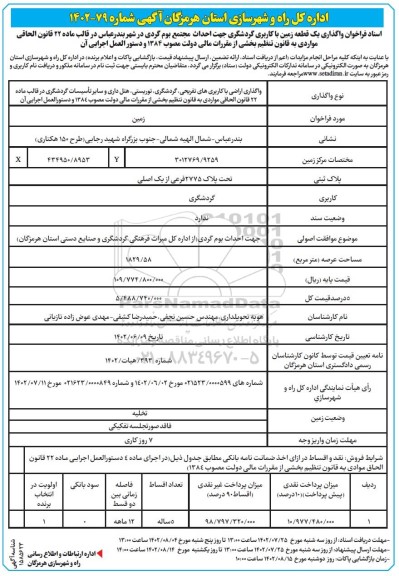 اداره کل راه و شهرسازی استان هرمزگان آگهی شماره ۷۹-۱۴۰۲
اسناد فراخوان واگذاری یک قطعه زمین با کاربری گردشگری جهت احداث مجتمع بوم گردی در شهر بندرعباس در قالب ماده ۲۲ قانون الحاقی
موادی به قانون تنظیم بخشی از مقررات مالی دولت مصوب ۱۳۸۴ و دستورالعمل اجرایی آن
با عنایت به اینکه کلیه مراحل انجام مزایدات (اعم از دریافت اسناد، ارائه تضمین، ارسال پیشنهاد قیمت، بازگشایی پاکات و اعلام برنده) در اداره کل راه و شهرسازی استان
هرمزگان به صورت الکترونیکی در سامانه تدارکات الکترونیکی دولت (ستاد) برگزار می گردد. متقاضیان محترم بایستی جهت ثبت نام در سامانه مذکور و دریافت نام کاربری و
رمز عبور به سایت www.setadiran.ir مراجعه فرمایند.
نوع واگذاری
واگذاری اراضی با کاربری های تفریحی، گردشگری، توریستی، هتل داری و سایر تأسیسات گردشگری در قالب ماده
۲۲ قانون الحاقی موادی به قانون تنظیم بخشی از مقررات مالی دولت مصوب ۱۳۸۴ و دستورالعمل اجرایی آن
مورد فراخوان
زمین
نشانی
بندرعباس-شمال الهیه شمالی-جنوب بزرگراه شهید رجایی(طرح ۱۵۰ هکتاری)
مختصات مرکز زمین
۳۰۱۲۷۶۹/۹۲۵۹
Y
۴۳۴۹۵۰/۸۹۵۳
X
پلاک ثبتی
تحت پلاک ۲۷۷۵ فرعی از یک اصلی
کاربری
گردشگری
وضعیت سند
ندارد
موضوع موافقت اصولی
جهت احداث بوم گردی(از اداره کل میراث فرهنگی گردشگری و صنایع دستی استان هرمزگان)
مساحت عرصه (متر مربع)
۱۸۲۹/۵۸
قیمت پایه (ریال)
۱۰۹/۷۷۴/۸۰۰/۰۰۰
۵درصد قیمت کل
۵/۴۸۸/۷۴۰/۰۰۰
نام کارشناسان
هوبه تحویلداری، مهندس حسین نجفی، حمیدرضا کشفی-مهدی عوض زاده تازیانی
تاریخ کارشناسی
۱۴۰۲/۰۶/۰۹
نامه تعیین قیمت توسط کانون کارشناسان
رسمی دادگستری استان هرمزگان
شماره ۳۹۳/هیات/۱۴۰۲
رأی هیأت نمایندگی اداره کل راه و
شهرسازی
شماره های ۰۲۱۵۲۳/۰۰۰۰۵۹۹ مورخ ۱۴۰۲/۰۶/۰۲ و شماره ۰۲۱۶۲۳/۰۰۰۰۸۴۹ مورخ ۱۴۰۲/۰۷/۱۱
وضعیت زمین
تخلیه
فاقد صورتجلسه تفکیکی
مهلت زمان واریز وجه
۷ روز کاری
شرایط فروش: نقد و اقساط در ازای اخذ ضمانت نامه بانکی مطابق جدول ذیل(در اجرای ماده ۴ دستورالعمل اجرایی ماده ۲۲ قانون
الحاق موادی به قانون تنظیم بخشی از مقررات مالی دولت مصوب ۱۳۸۴)
ردیف
میزان پرداخت نقدی (پیش پرداخت) (۱۰درصد)
میزان پرداخت غیر نقدی (اقساط ۹۰ درصد)
تعداد اقساط
فاصله زمانی بین دو قسط
سود بانکی
اولویت در انتخاب برنده
۱
۱۰/۹۷۷/۴۸۰/۰۰۰
۹۸/۷۹۷/۳۲۰/۰۰۰
۵ساله
۱۲ ماهه
۰
۱
مهلت دریافت اسناد: از روز سه شنبه مورخ ۱۴۰۲/۰۷/۲۵ ساعت ۱۳:۰۰ تا روز پنج شنبه مورخ ۱۴۰۲/۰۸/۰۴ ساعت ۱۳:۰۰
مهلت ارسال پیشنهاد: از روز سه شنبه مورخ ۱۴۰۲/۰۷/۲۵ ساعت ۱۳:۰۰ تا روز یکشنبه مورخ ۱۴۰۲/۰۸/۱۴ ساعت ۱۳:۰۰
زمان بازگشایی پاکات: روز دوشنبه مورخ ۱۴۰۲/۰۸/۱۵ ساعت ۱۰:۰۰
اداره ارتباطات و اطلاع رسانی
راه و شهرسازی هرمزگان
ParsNamadData
۰۲۱-۸۸۳۴۹۶۷۰-۵